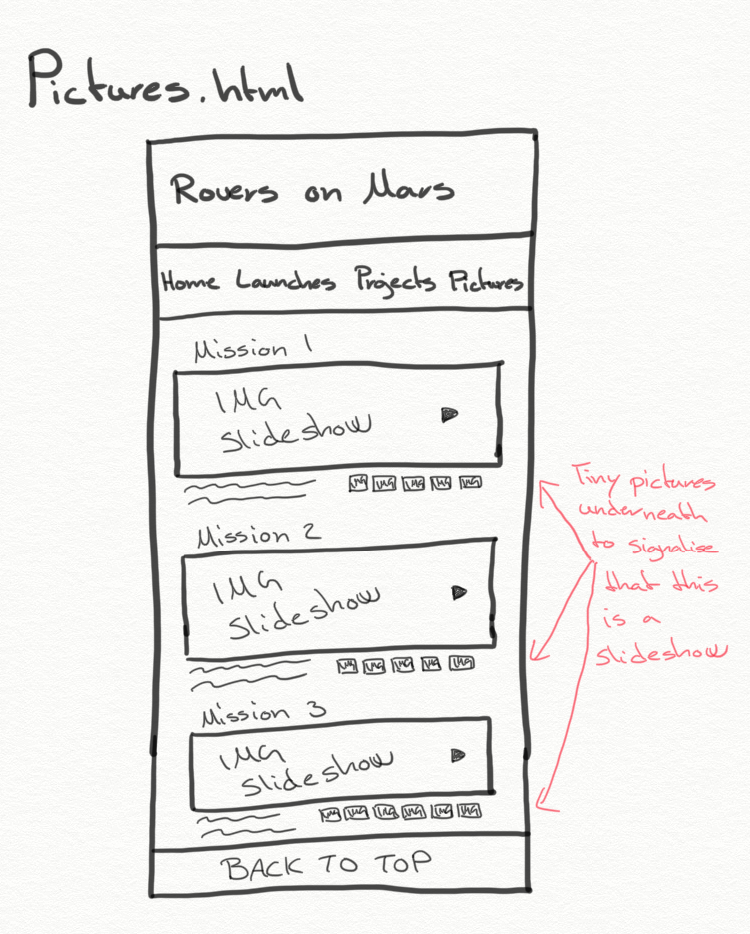 Pictures.html
Rovers on Mars
Home Launches Projects Pictures
Mission 1
IMG
Slideshow
IMG IMG IMG IMG IMG
Mission 2
IMG
Slideshow
IMG IMG IMG IMG IMG
Mission 3
IMG
Slideshow
IMG IMG IMG IMG IMG IMG
BACK TO TOP
Tiny pictures
underneath
to signalise
that this
is a
slideshow